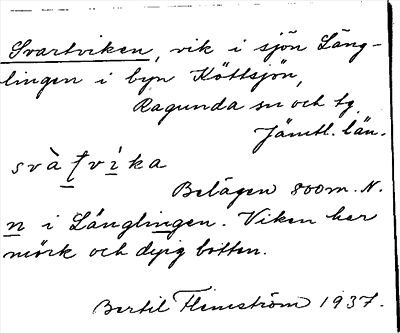 Svartviken, vik i sjön Läng-
lingen i byn Köttsjön,
Ragunda sn och tg.
Jämtl. län.
svàt̠vi̠̇ka
Belägen 800m. N.
n i Länglingen. Viken har
mörk och dyig botten.
Bertil Flemström 1937.